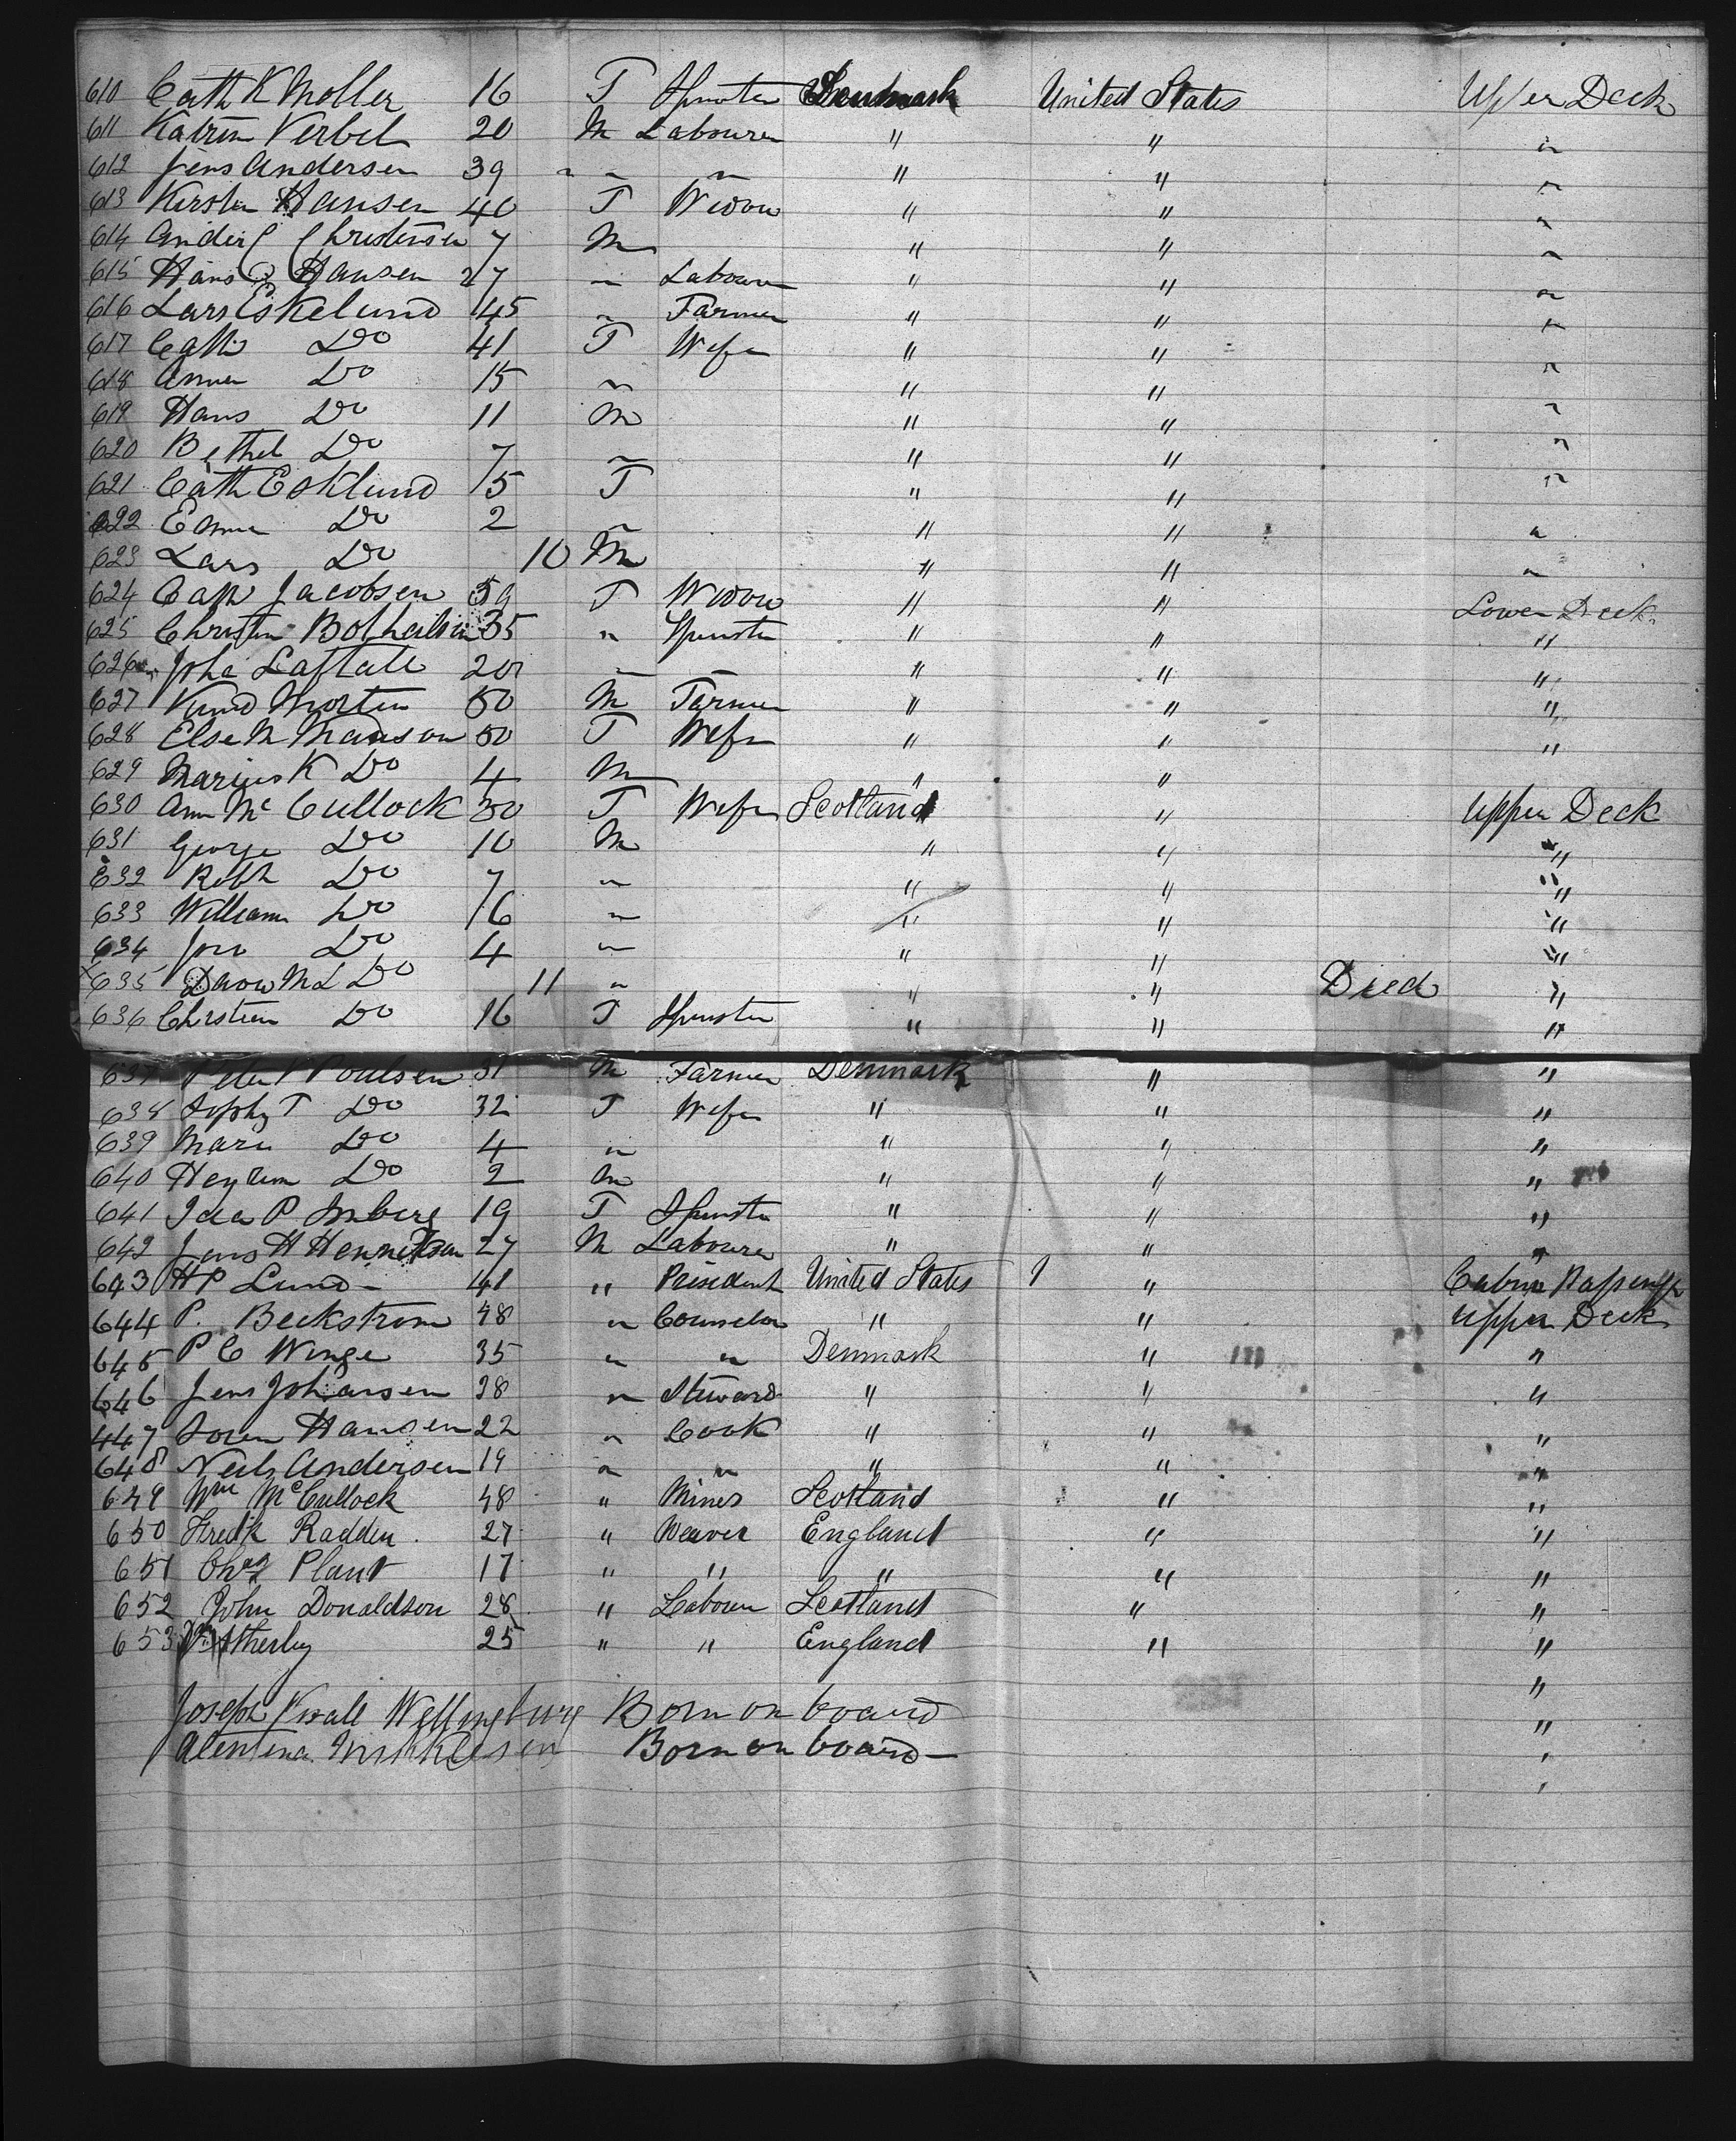 610 Cath K Moller 16 F Spinster Denmark United States Upper Deck
611 Katrin Verbel 20 M Labourer " " "
612 Jens Andersen 39 " " " " " "
613 Kirstn Hansen 40 F Widow " " "
614 Ander C Christensen 7 M " " "
615 Hans C Hansen 27 " Labourer " " "
616 Lars Eskelund 45 " Farmer " " "
617 Cath Do 41 F Wife " " "
618 Anna Do 15 " " " "
619 Hans Do 11 M " " "
620 Bethel Do 7 " " " "
621 Cath Esklund 5 F " " "
622 Emma Do 2 " " " "
623 Lars Do 10 M " " "
624 Cath Jacobsen 59 F Widow " " Lower Deck
625 Christin 35 " Spinster " " "
626 Joha 20 " " " "
627 Knud Morten 50 M Farmer " " "
628 Else M Madson 50 F Wife " " "
629 Marius K Do 4 M " "
630 Ann Mc Cullock 50 F Wife Scotland " Upper Deck
631 George Do 10 M " " "
632 Robt Do 7 " " " "
633 William Do 16 " " " "
634 Do 4 " " " "
635 David Mc Do 11 " " " Died "
636 Christian Do 16 F Spinster " " "
637 Peter P Poulsen 31 M Farmer Denmark " "
638 Sophy F Do 32 F Wife " " "
639 Mari Do 4 " " " "
640 Do 2 M " " "
641 Ida P 19 F Spinster " " "
642 Jens H Henriksen 27 M Labourer " " "
643 H P Lund 41 " President United States 1 " Cabin Passenger
644 P. Beckstrom 48 " Counselor " " Upper Deck
645 P C Winge 35 " " Denmark " "
646 Jens Johansen 28 " Steward " " "
447 Soren Hansen 22 " Cook " " "
648 Neils Andersen 19 " " " " "
649 Wm McCullock 48 " Miner Scotland " "
650 Fredk Radden 27 " Weaver England " "
651 Chas Plant 17 " " " " "
652 John Donaldson 28 " Labourer Scotland " "
653 25 " " England " "
"
Joseph Wellingburg Born on board "
Born on board "
"